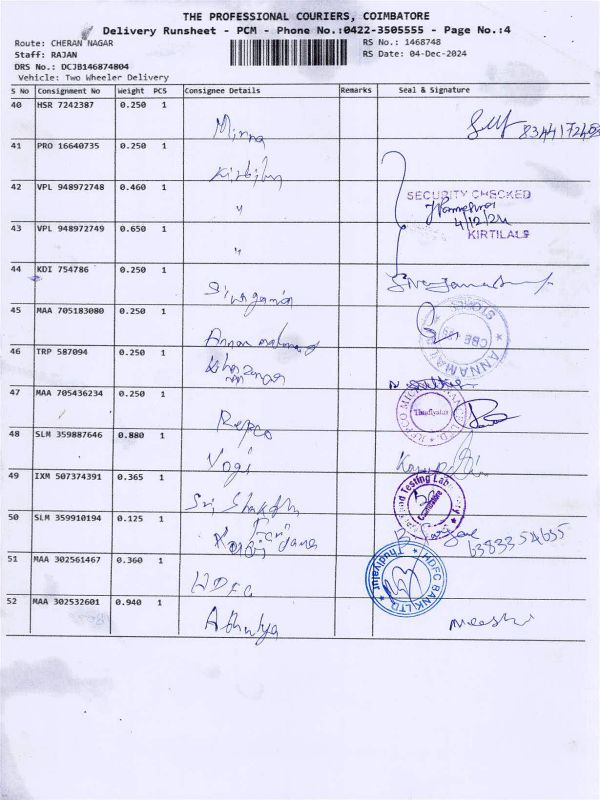 THE PROFESSIONAL COURIERS, COIMBATORE
Delivery Runsheet - PCM - Phone No.:0422-3505555 - Page No.:4
Route: CHERAN NAGAR
RS No.: 1468748
Staff: RAJAN
RS Date: 04-Dec-2024
DRS No.: DCJB146874804
Vehicle: Two Wheeler Delivery
S No Consignment No Weight PCS Consignee Details Remarks Seal & Signature
40 HSR 7242387 0.250 1
Minna
41 PRO 16640735 0.250 1
42 VPL 948972748 0.460 1
"
SECURITY CHECKED
4/12/24
KIRTILALS
43 VPL 948972749 0.650 1
"
44 KDI 754786 0.250 1
45 MAA 705183080 0.250 1
STORES
CBE
ANNAMALAI
46 TRP 587094 0.250 1
47 MAA 705436234 0.250 1
Repco
Thudiyalur
48 SLM 359887646 0.880 1
Yogi
49 IXM 507374391 0.365 1
Sri Shakthi
Food Testing Laboratory
Coimbatore
50 SLM 359910194 0.125 1
6383354655
51 MAA 302561467 0.360 1
HDFC
HDFC BANK LTD.
Thudiyalur
52 MAA 302532601 0.940 1
Athulya